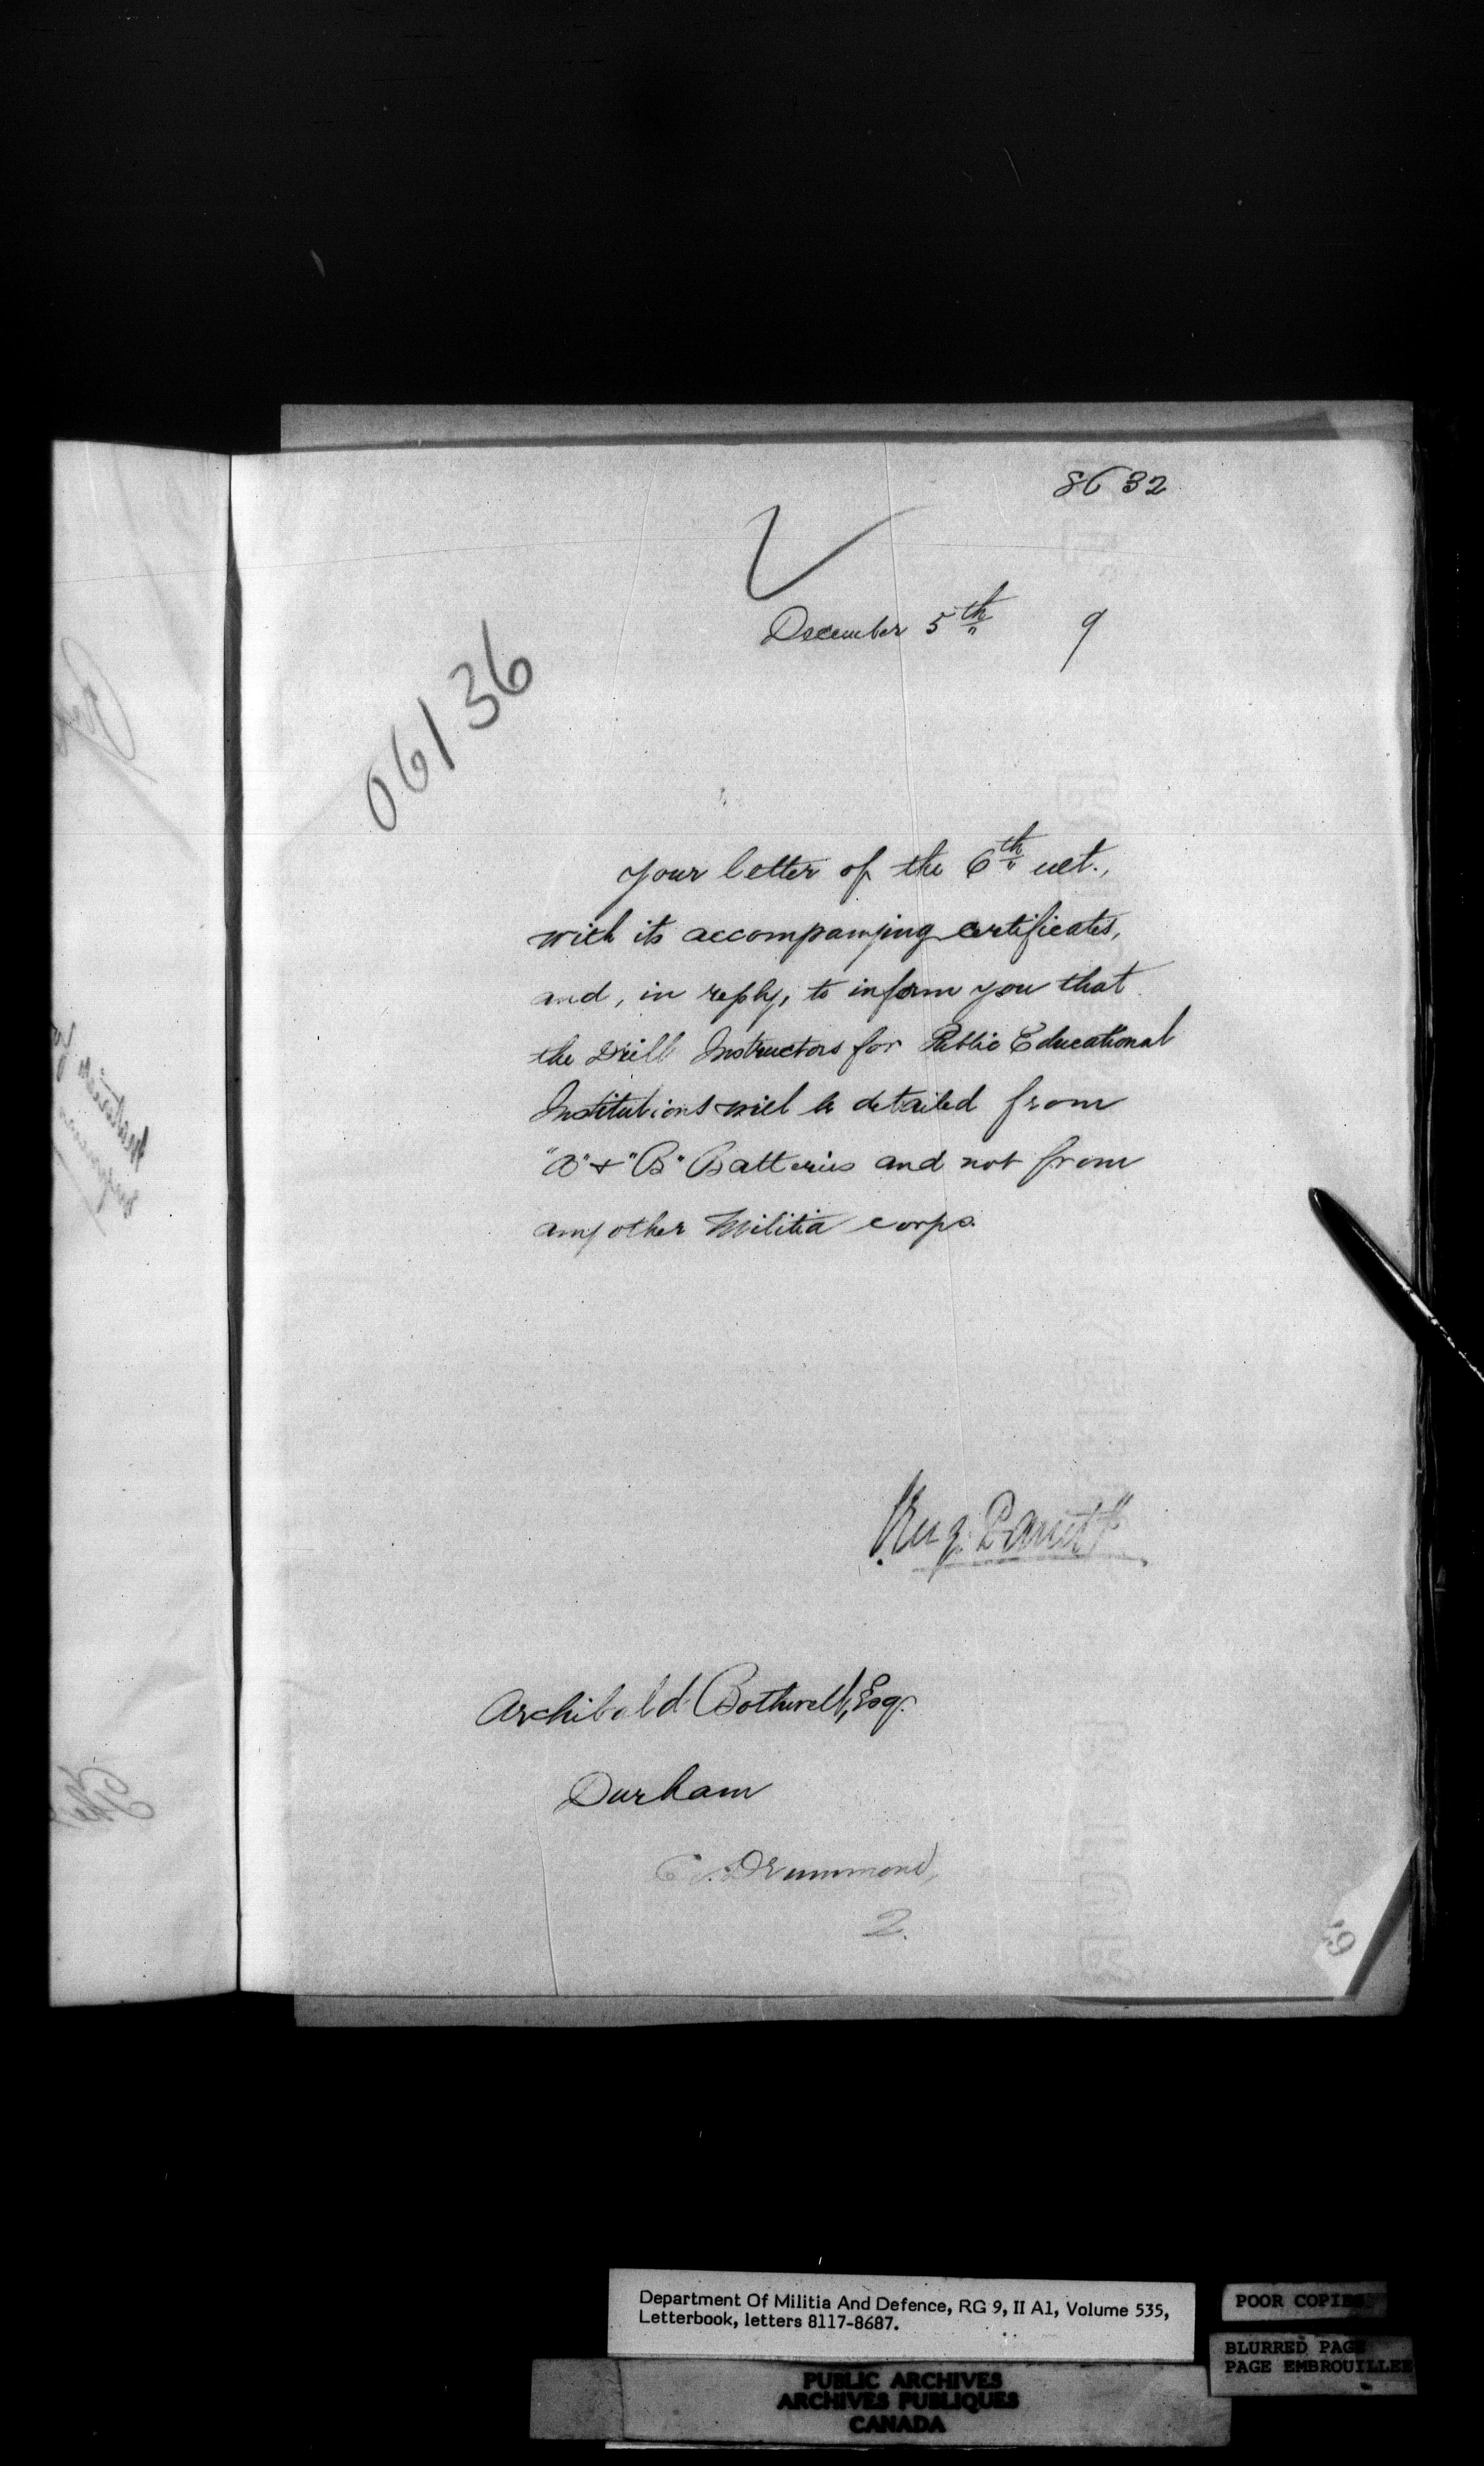 8632
December 5th 9
06136
Your letter of the 6th ult.,
with its accompanying certificates,
and, in reply, to inform you that
the Drill Instructors for Public Educational
Institutions will be detailed from
"A" & "B" Batteries and not from
any other Militia corps.
Archibald Bothwell, Esq.
Durham
Co. Drummond,
2.
Department Of Militia And Defence, RG 9, II A1, Volume 535,
Letterbook, letters 8117-8687.
POOR COPIES
BLURRED PAGE
PAGE EMBROUILLEE
PUBLIC ARCHIVES
ARCHIVES PUBLIQUES
CANADA